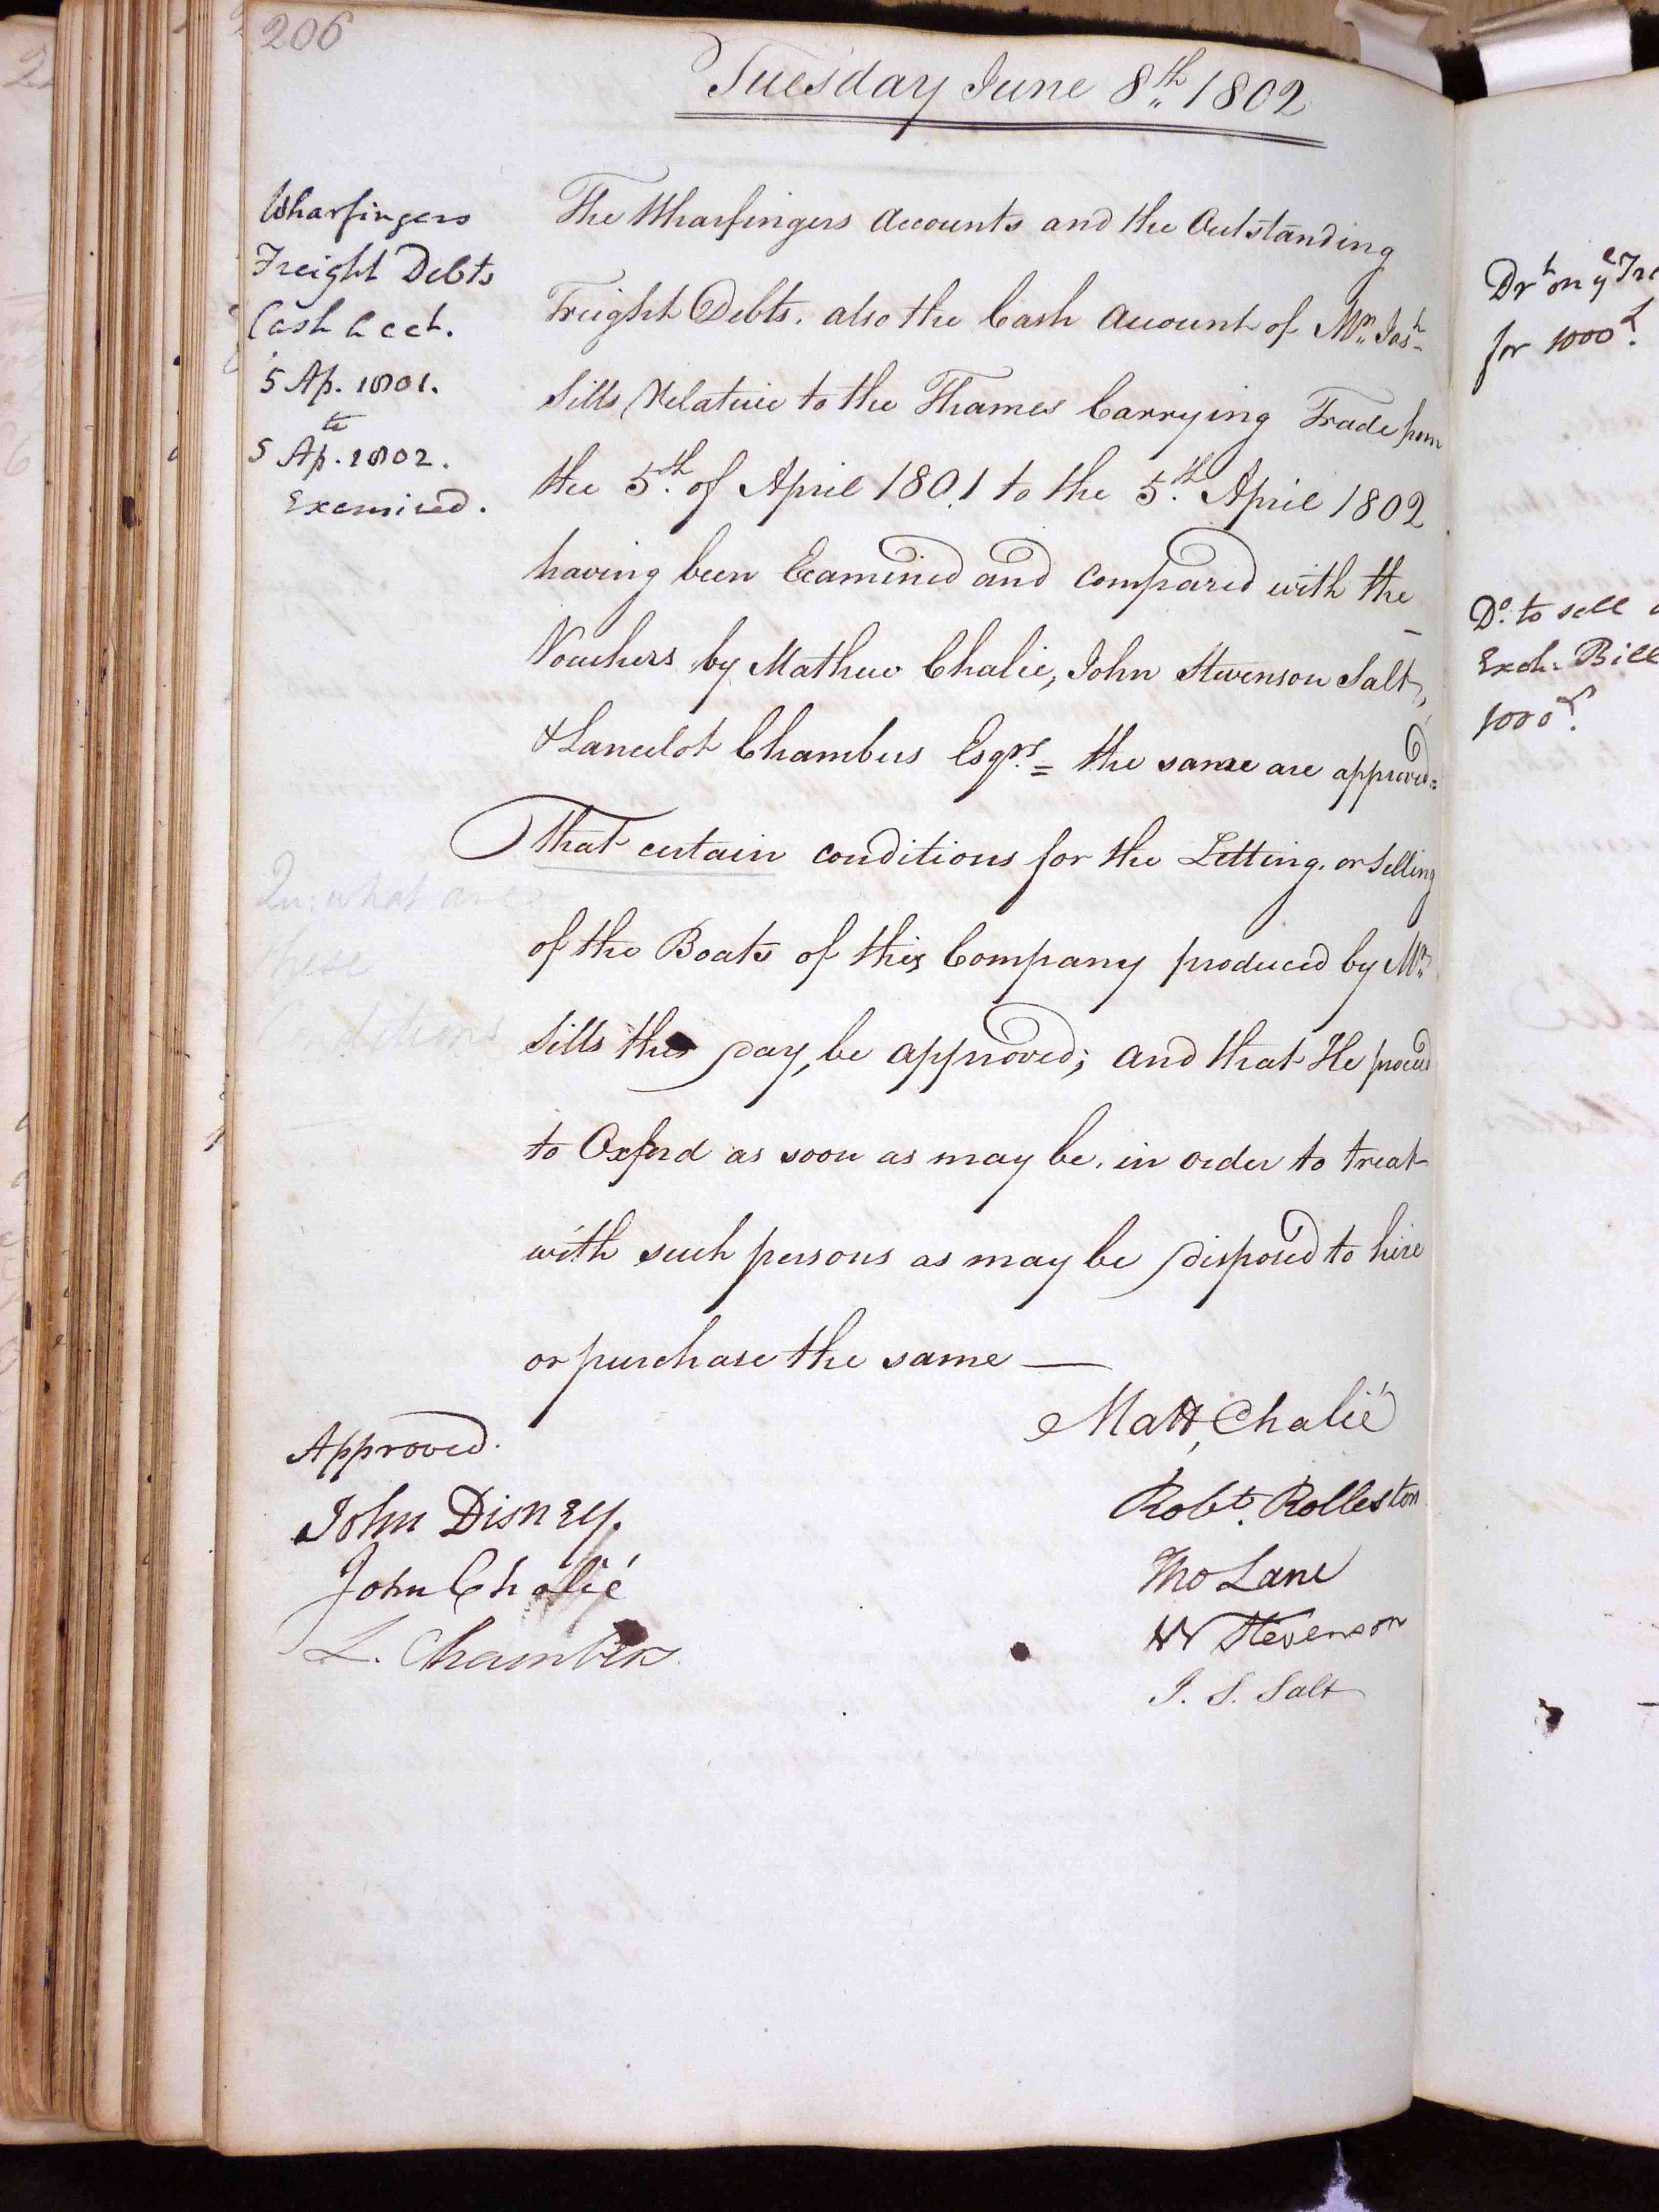 206
Tuesday June 8th 1802
Wharfingers
Freight Debts
Cash Acct.
5 Ap. 1801.
to
5 Ap. 1802.
Examined.
The Wharfingers Accounts and the Outstanding
Freight Debts. also the Cash Account of Mr. Jas.
Sills Relative to the Thames Carrying Trade from
the 5th. of April 1801 to the 5th. April 1802
having been Examined and Compared with the
Vouchers by Mathew Chalie, John Stevenson Salt,
& Lancelot Chambers Esqrs. = the same are approved =
That certain conditions for the Letting. or Selling
of the Boats of this Company produced by Mr.
Sills this day, be approved; and that He proceed
to Oxford as soon as may be. in order to treat
with such persons as may be disposed to hire
or purchase the same —
Qu: what are
these
Conditions
Matt, Chalié
Robt. Rolleston
Tho Lane
W Stevenson
J. S. Salt
Approved.
John Disney.
John Chalié
L. Chambers
Drt on ye
for 1000£.
Do. to sell
Exch. Bill
1000£.